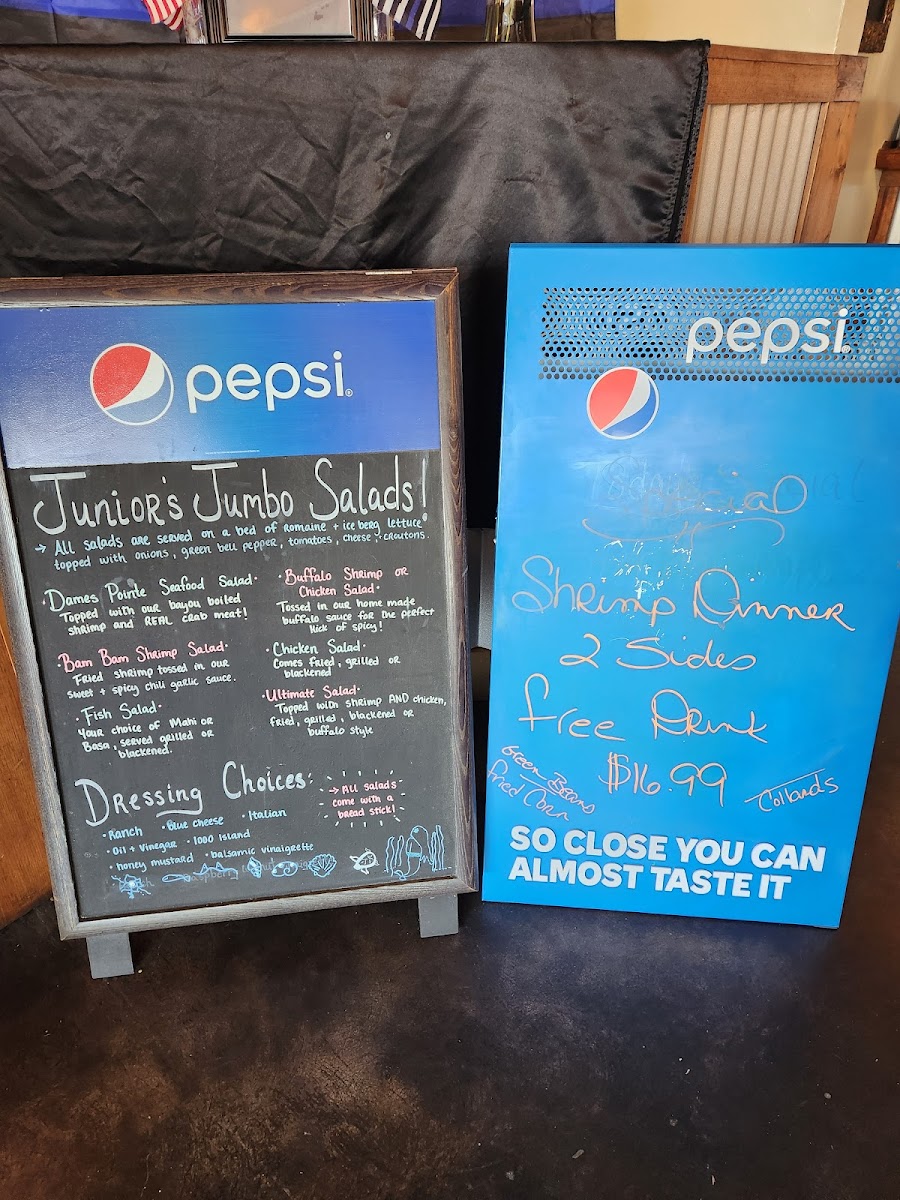 pepsi
Junior's Jumbo Salads!
→ All salads are served on a bed of romaine + iceberg lettuce
topped with onions, green bell pepper, tomatoes, cheese + croutons.
· Dames Pointe Seafood Salad ·
Topped with our bayou boiled
shrimp and REAL crab meat!
· Bam Bam Shrimp Salad ·
Fried shrimp tossed in our
sweet + spicy chili garlic sauce.
· Fish Salad ·
Your choice of Mahi or
Basa, served grilled or
blackened.
· Buffalo Shrimp or
Chicken Salad ·
Tossed in our home made
buffalo sauce for the perfect
kick of spicy!
· Chicken Salad ·
Comes fried, grilled or
blackened
· Ultimate Salad ·
Topped with shrimp AND chicken,
fried, grilled, blackened or
buffalo style
Dressing Choices:
· Ranch · Blue cheese · Italian
· Oil + Vinegar · 1000 Island
· honey mustard · balsamic vinaigrette
→ All salads
come with a
bread stick!
pepsi
Special
Shrimp Dinner
2 Sides
free Drink
$16.99
Green Beans
fried Corn
Collards
SO CLOSE YOU CAN
ALMOST TASTE IT